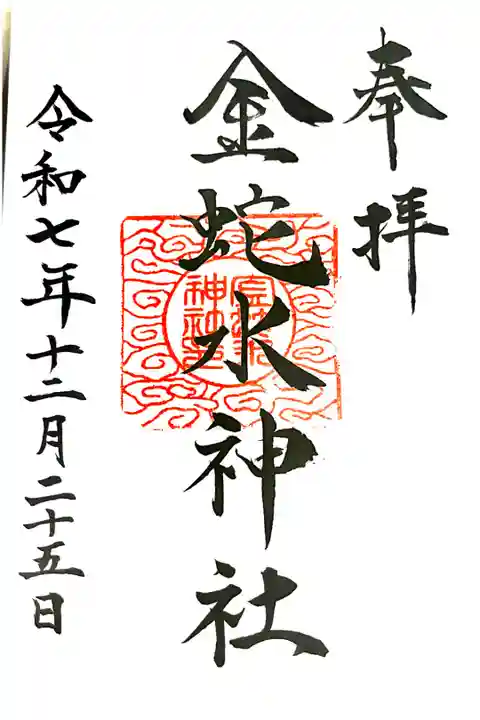 奉拝
金蛇水神社
令和七年十二月二十五日